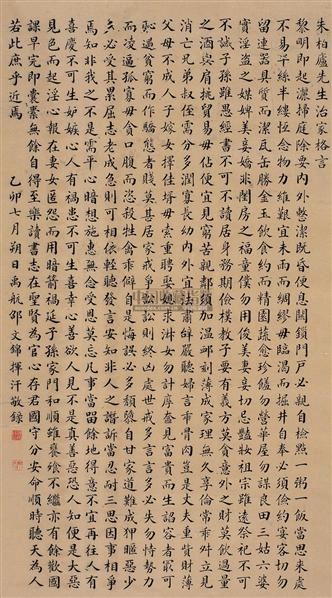 朱柏廬先生治家格言
黎明即起灑掃庭除要內外整潔既昏便息關鎖門戶必親自檢點一粥一飯當思來處
不易半絲半縷恆念物力維艱宜未雨而綢繆毋臨渴而掘井自奉必須儉約宴客切勿
留連器具質而潔瓦缶勝金玉飲食約而精園蔬愈珍饈勿營華屋勿謀良田三姑六婆
實淫盜之媒婢美妾嬌非閨房之福童僕勿用俊美妻妾切忌豔妝祖宗雖遠祭祀不可
不誠子孫雖愚經書不可不讀居身務期儉樸教子要有義方莫貪意外之財莫飲過量
之酒與肩挑貿易毋佔便宜見窮苦親鄰須加溫卹刻薄成家理無久享倫常乖舛立見
消亡兄弟叔侄需分多潤寡長幼內外宜法肅辭嚴聽婦言乖骨肉豈是丈夫重貲財薄
父母不成人子嫁女擇佳壻毋索重聘娶媳求淑女勿計厚奩見富貴而生諂容者最可
恥遇貧窮而作驕態者賤莫甚居家戒爭訟訟則終凶處世戒多言言多必失勿恃勢力
而凌逼孤寡毋貪口腹而恣殺牲禽乖僻自是悔誤必多頹墮自甘家道難成狎暱惡少
久必受其累屈志老成急則可相倚輕聽發言安知非人之譖訴當忍耐三思因事相爭
焉知非我之不是需平心暗想施惠無念受恩莫忘凡事當留餘地得意不宜再往人有
喜慶不可生妒嫉心人有禍患不可生喜幸心善欲人見不是真善惡恐人知便是大惡
見色而起淫心報在妻女匿怨而用暗箭禍延子孫家門和順雖饔飧不繼亦有餘歡國
課早完即囊橐無餘自得至樂讀書志在聖賢為官心存君國守分安命順時聽天為人
若此庶乎近焉 乙卯七月朔日禹航邵文錦揮汗敬錄